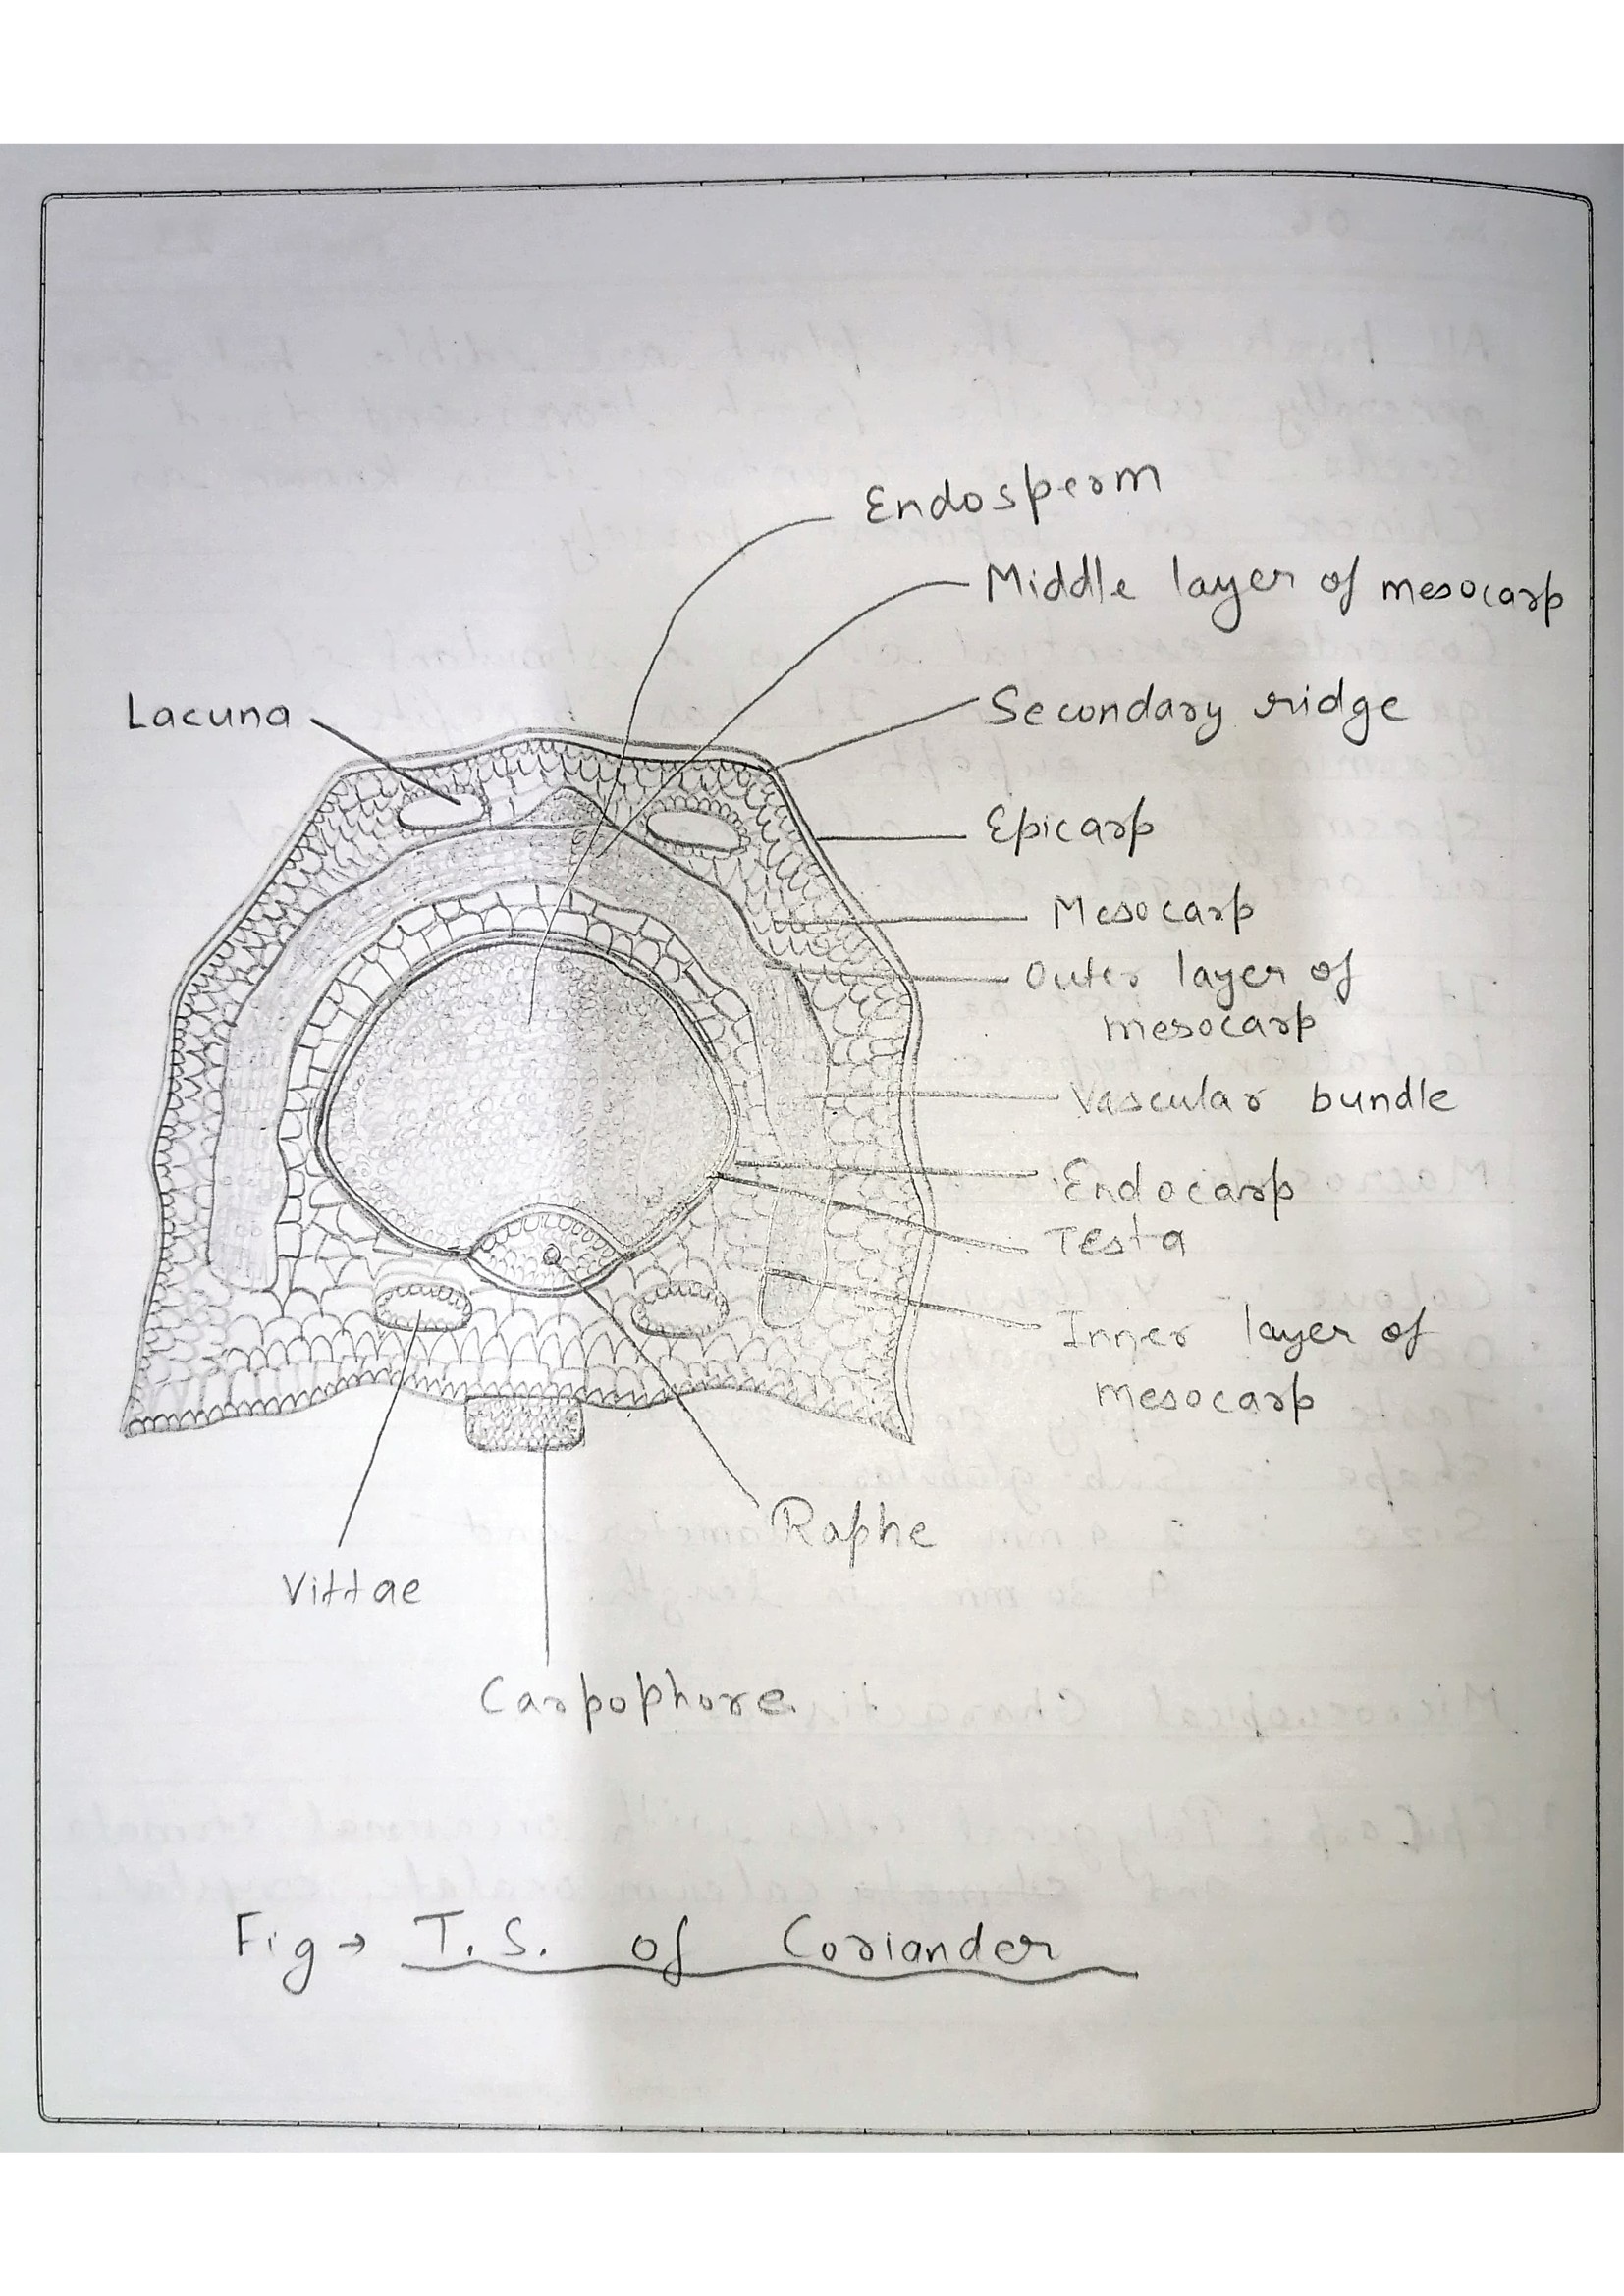 Endosperm
Middle layer of mesocarp
Lacuna
Secondary ridge
Epicarp
Mesocarp
Outer layer of
mesocarp
Vascular bundle
Endocarp
Testa
Inner layer of
mesocarp
Raphe
Vittae
Carpophore
Fig → T.S. of Coriander